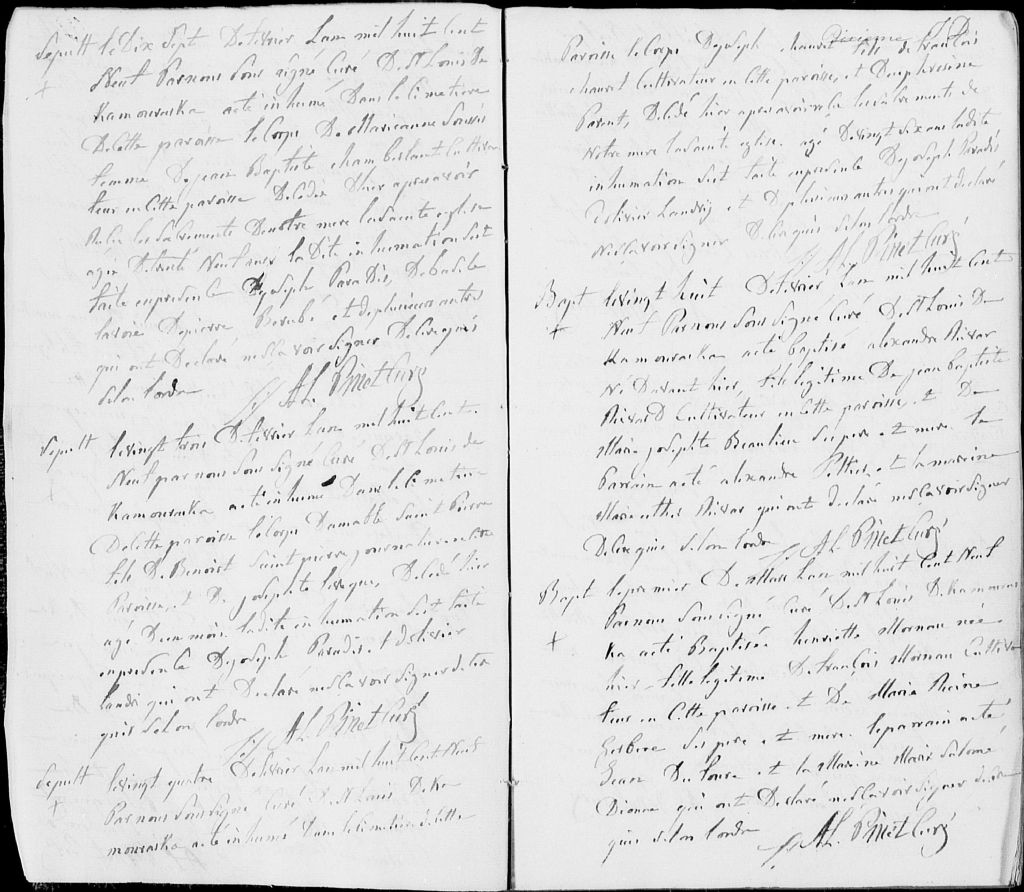 Sepult le Dix Sept De fevrier Lan mil huit Cent
Neuf Parnous Sous Signé Curé D. St Louis De
Kamouraska aété inhumé Dans le Cimetiere
De Cette paroisse le Corps De Marieanne
femme De jean Baptiste Chamberlant Cultiva
teur en Cette paroisse Decedée D'hier apres avoir
Reçu les Sacrements De notre mere la Sainte eglise
agée De trente Neuf ans la Dite inhumation S'est
faite en presence De joseph ParaDis, De basile
lavoie De pierre Berubé et De plusieurs autres
qui ont Declaré ne Sçavoir Signer De Ce requis
Selon lordce
A L. Pinet Curé
Sepult le vingt trois De fevrier Lan mil huit Cent
Neuf par nous Sous Signé Curé D. St Louis de
Kamouraska aété inhumé Dans le Cimetiere
De Cette paroisse le Corps D'amable Saint Pierre
fils De Benoist Saint pierre journalier en Cette
Paroisse, et De josephte levêque, Decedé hier
agé D'un mois. la dite inhumation S'est faite
en presence De joseph Paradis et D'olivier
landri qui ont Declaré ne Sçavoir Signer de Ce re
quis Selon lordce
A L. Pinet Curé
Sepult le vingt quatre De fevrier Lan mil huit Cent Neuf
Par nous Sous Signé Curé D. St Louis De Ka
mouraska aété inhumé Dans le Cimetiere de Cette
Paroisse le Corps De joseph chauret fils de francois
chauret Cultivateur en Cette paroisse, et D'euphrosine
Parent, Decedé hier apres avoir les Sacrements de
Notre mere la Sainte eglise. agé De vingt Six ans la dite
inhumation S'est faite en presence De joseph Paradis
D'olivier Landry et De plusieurs autres qui ont declaré
ne Sçavoir Signer De Ce requis Selon lordce
A L. Pinet Curé
Bapt le vingt huit De fevrier Lan mil huit Cent
Neuf Par nous Sous Signé Curé D. St Louis De
Kamouraska aété baptisé alexandre Rivar
Né D'avant hier, fils legitime De jean baptiste
Rivard Cultivateur en Cette paroisse, et De
Marie josephte Beaulieu Ses pere et mere. Le
Parrain aété alexandre Peltier, et la marraine
Marie Rivar qui ont declaré ne Sçavoir Signer
De Ce requis Selon lordce A L. Pinet Curé
Bapt le premier De Mars Lan mil huit Cent Neuf
Par nous Sous Signé Curé D. St Louis De Kamouras
ka aété Baptisée henriette Morneau née
hier fille legitime De François Morneau Cultiva
teur en Cette paroisse et De Marie
Ses pere et mere. le parrain aété
et la Marraine Marie Salomé
Dionne qui ont Declaré ne Sçavoir Signer de Ce re
quis Selon lordce
A L. Pinet Curé